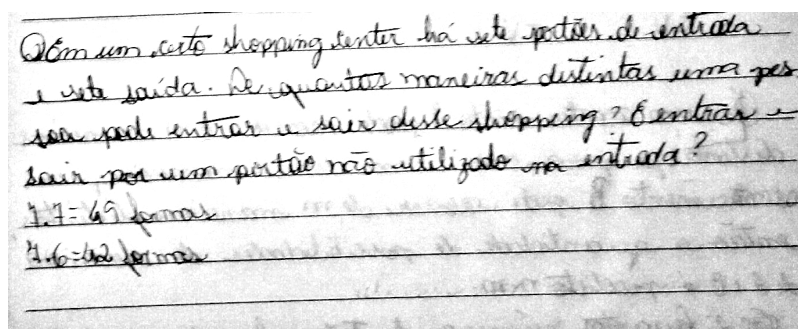 Q Em um certo shopping senter há sete portões de entrada
e sete saída. De quantas maneiras distintas uma pes
soa pode entrar e sair desse shopping? E entrar e
sair por um portão não utilizado na entrada?
7.7=49 formas
7.6=42 formas